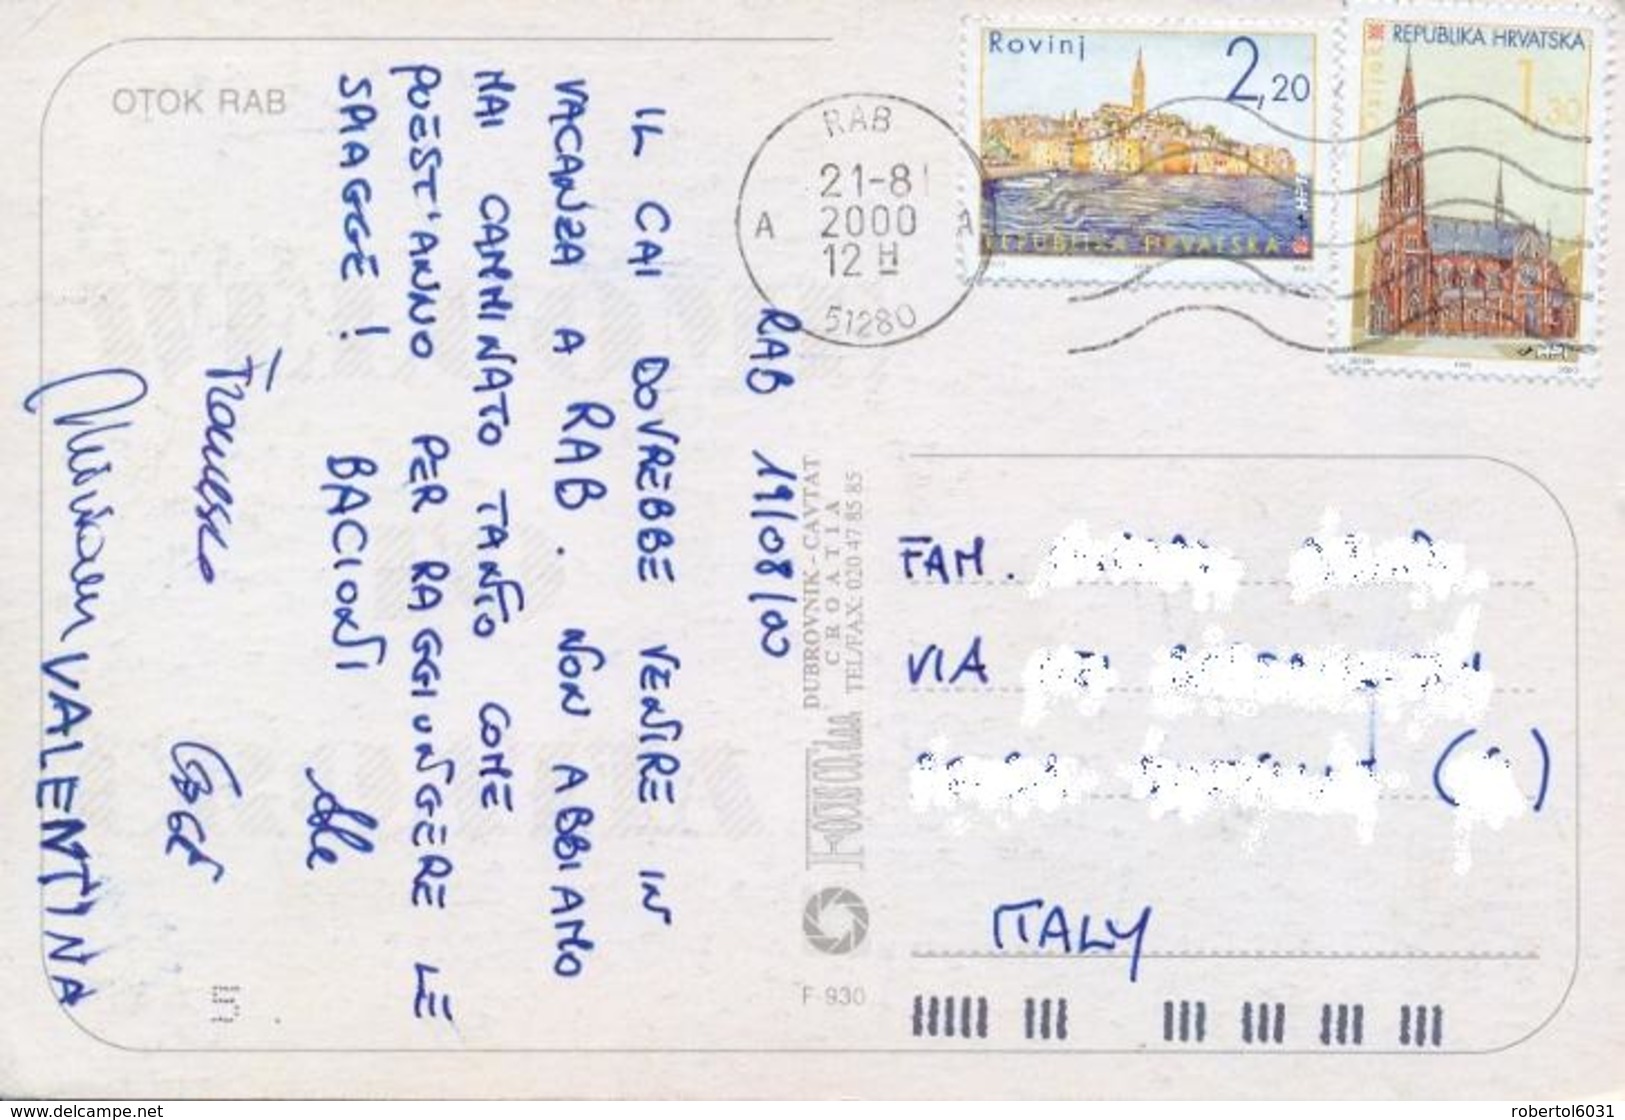 OTOK RAB
RAB 19/08/00
IL CAI DOVREBBE VENIRE IN
VACANZA A RAB. NON ABBIAMO
MAI CAMMINATO TANTO COME
QUEST'ANNO PER RAGGIUNGERE LE
SPIAGGE! BACIONI
Ale
Francesco
VALENTINA
RAB
21-8
2000
12 H
A A
51280
Rovinj
2,20
REPUBLIKA HRVATSKA
REPUBLIKA HRVATSKA
1,30
DUBROVNIK - CAVTAT
CROATIA
TEL/FAX: 020 47 85 85
F 930
FAM.
VIA
( )
ITALY
www.delcampe.net
robertol6031